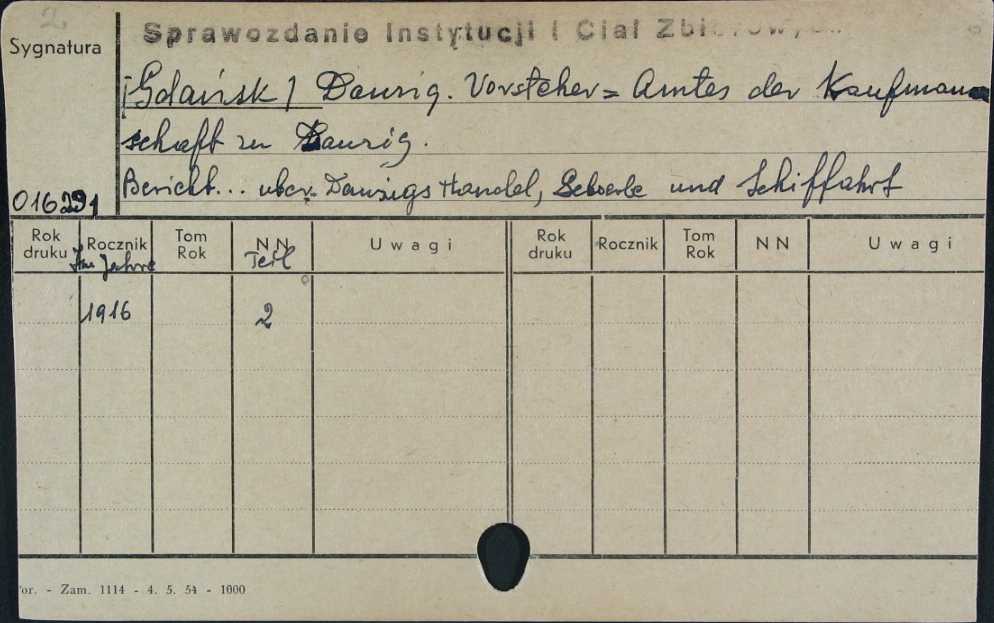 2
Sygnatura
Sprawozdanie Instytucji i Ciał Zbiorowych
[Gdańsk] Danzig. Vorsteher= Amtes der Kaufmann
schaft zu Danzig.
Bericht... uber Danzigs Handel, Gewerbe und Schiffahrt
016291
Rok druku Rocznik Tom Rok NN Uwagi Rok druku Rocznik Tom Rok NN Uwagi
Im Jahre Teil
1916 2
or. - Zam. 1114 - 4. 5. 54 - 1000